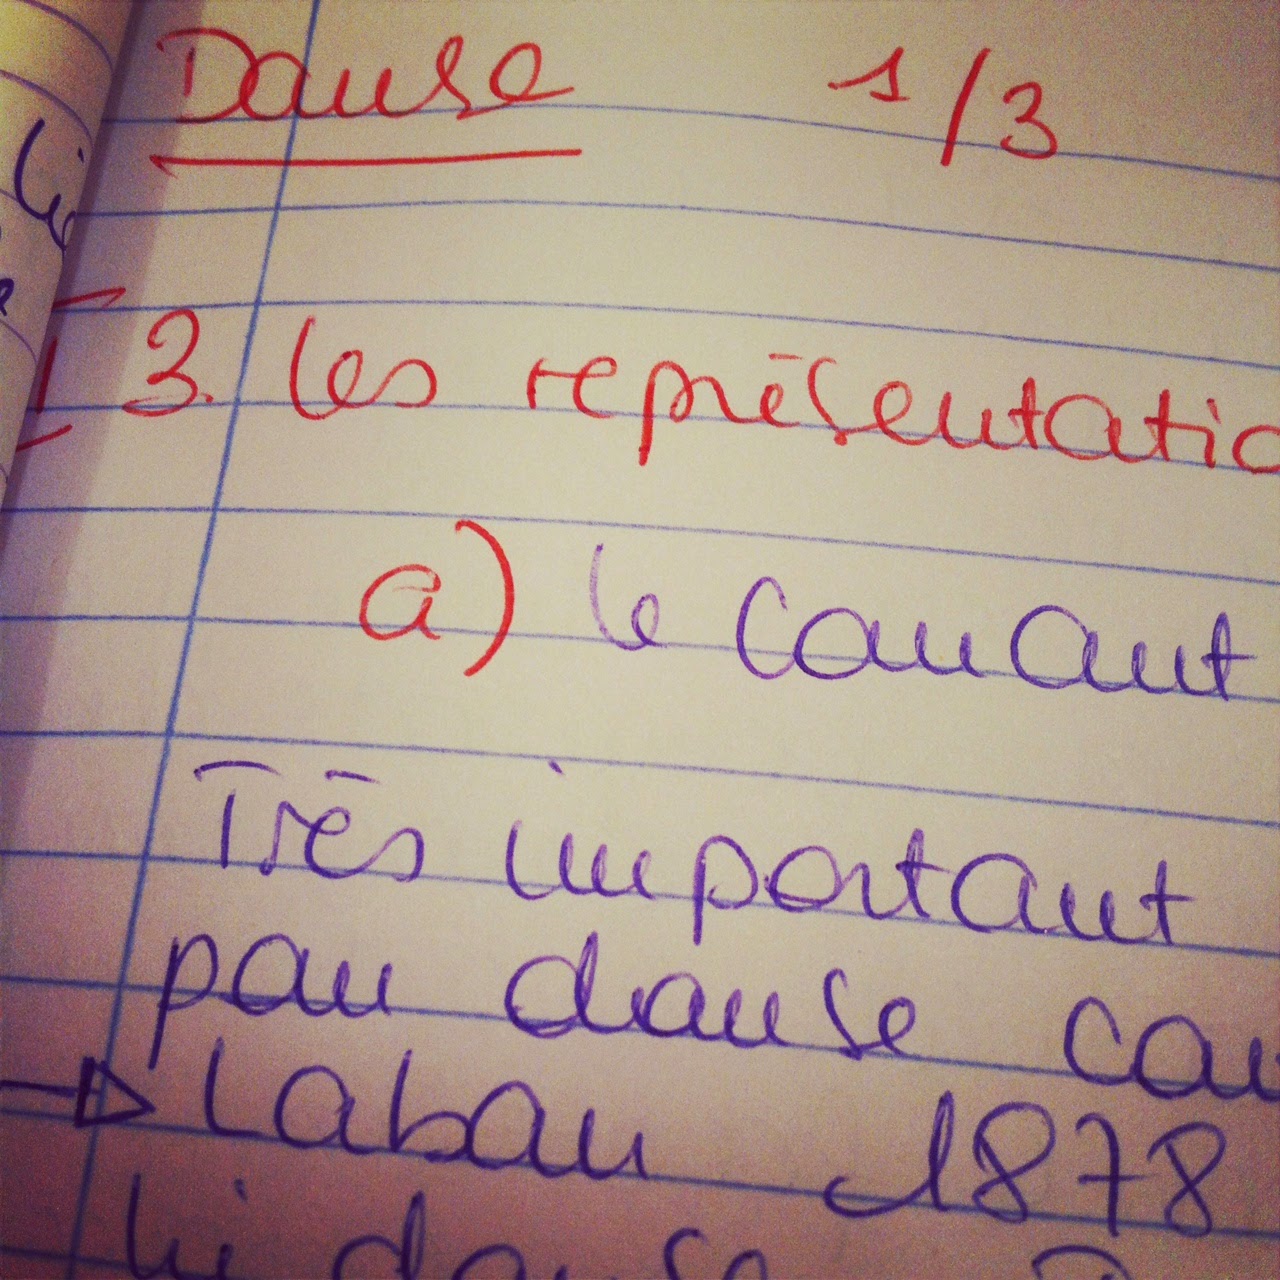 Danse 1/3
3. les représentatio
a) le courant
Très important
pour danse cou
Laban 1878
lui danse